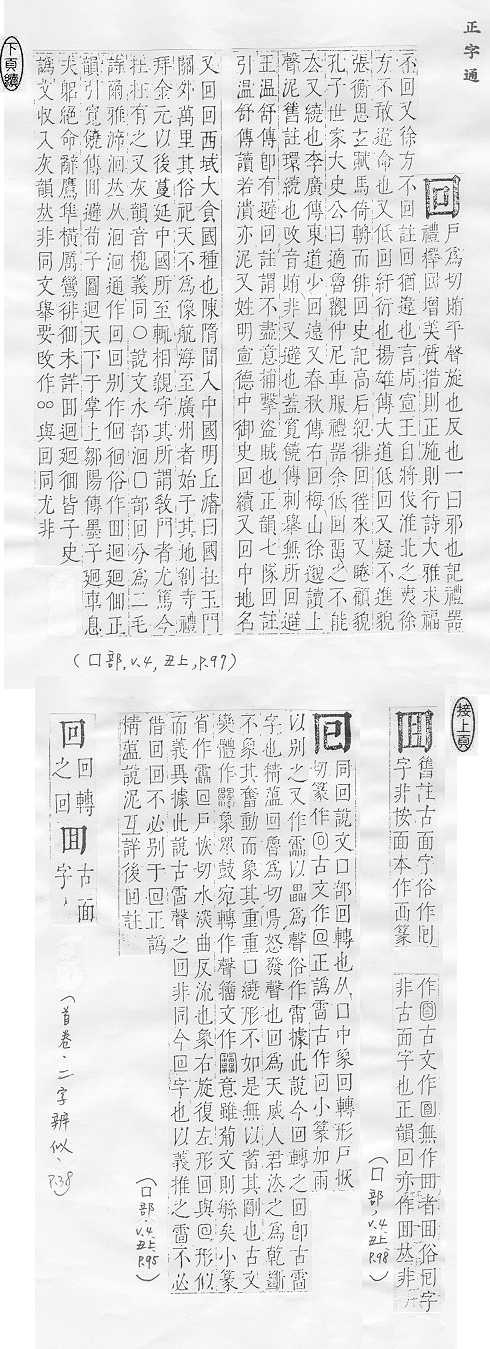 正字通
回 戶爲切賄平聲旋也反也一曰邪也記禮器
禮釋回增美質措則正施則行詩大雅求福
不回又徐方不回註回猶違也言周宣王自將伐淮北之夷徐
方不敢違命也又低回紆衍也揚雄傳大道低回又疑不進貌
張衡思玄賦馬倚輈而徘回史記高后紀徘回徃來又睠顧貌
孔子世家大史公曰適魯觀仲尼車服禮器余低回畱之不能
去又繞也李廣傳東道少回遠又春秋傳右回梅山徐邈讀上
聲泥舊註環繞也攺音賄非又邅也葢寬饒傳刺舉無所回避
正溫舒傳卽有避回註謂不盡意捕擊盜賊也正韻七隊回註
引溫舒傳讀若潰亦泥又姓明啇德中御史回續又回中地名
又回回西域大食國種也陳隋間入中國明丘濬曰國在玉門
關外萬里其俗祀天不爲像航海至廣州者始于其地創寺禮
拜金元以後蔓延中國所至輒相親守其所謂敎門者尤篤今
在在有之又灰韻音槐義同○說文水部洄囗部回分爲二毛
詩爾雅遡洄𠀤从洄洄通作回回別作佪徊俗作囬迴廻佪正
韻引寬饒傳囬避荀子圖迴天下于掌上鄒陽傳墨子廻車息
夫躬絕命辭鷹隼橫厲鸞徘徊未詳囬迴廻徊皆子史
譌文收入灰韻𠀤非同文舉要攺作○○與回同尤非
(口部,v.4,丑上,p.97)
下頁續
接上頁
囬 舊註古面字俗作囘
字非按面本作𠚑篆
作圓古文作圓無作囬者囬俗囘字
非古面字也正韻回亦作囬𠀤非
(口部,v.4丑上p.98)
囘 同回說文口部回轉也从口中象回轉形戶恢
切篆作回古文作囘正譌雷古作回小篆加雨
以別之又作靁以畾爲聲俗作雷據此說今回轉之回卽古雷
字也精薀回魯爲切鳥怒發聲也回爲天威人君法之爲乾斷
不象其奮動而象其重重口繞形不如是無以蓄其剛也古文
變體作象眾鼓宛轉作聲籀文作意雖葡文則緐矣小篆
省作靁囘戶恢切水漩曲反流也象右旋復左形回與囘形似
而義異據此說古雷聲之回非同今囘字也以義推之雷不必
借回回不必別于囘正譌
精薀說泥互詳後回註
(口部.v.4丑上p.95)
回 回轉
之回
囬 古面
字,
(首卷.二字辨似.p.38)